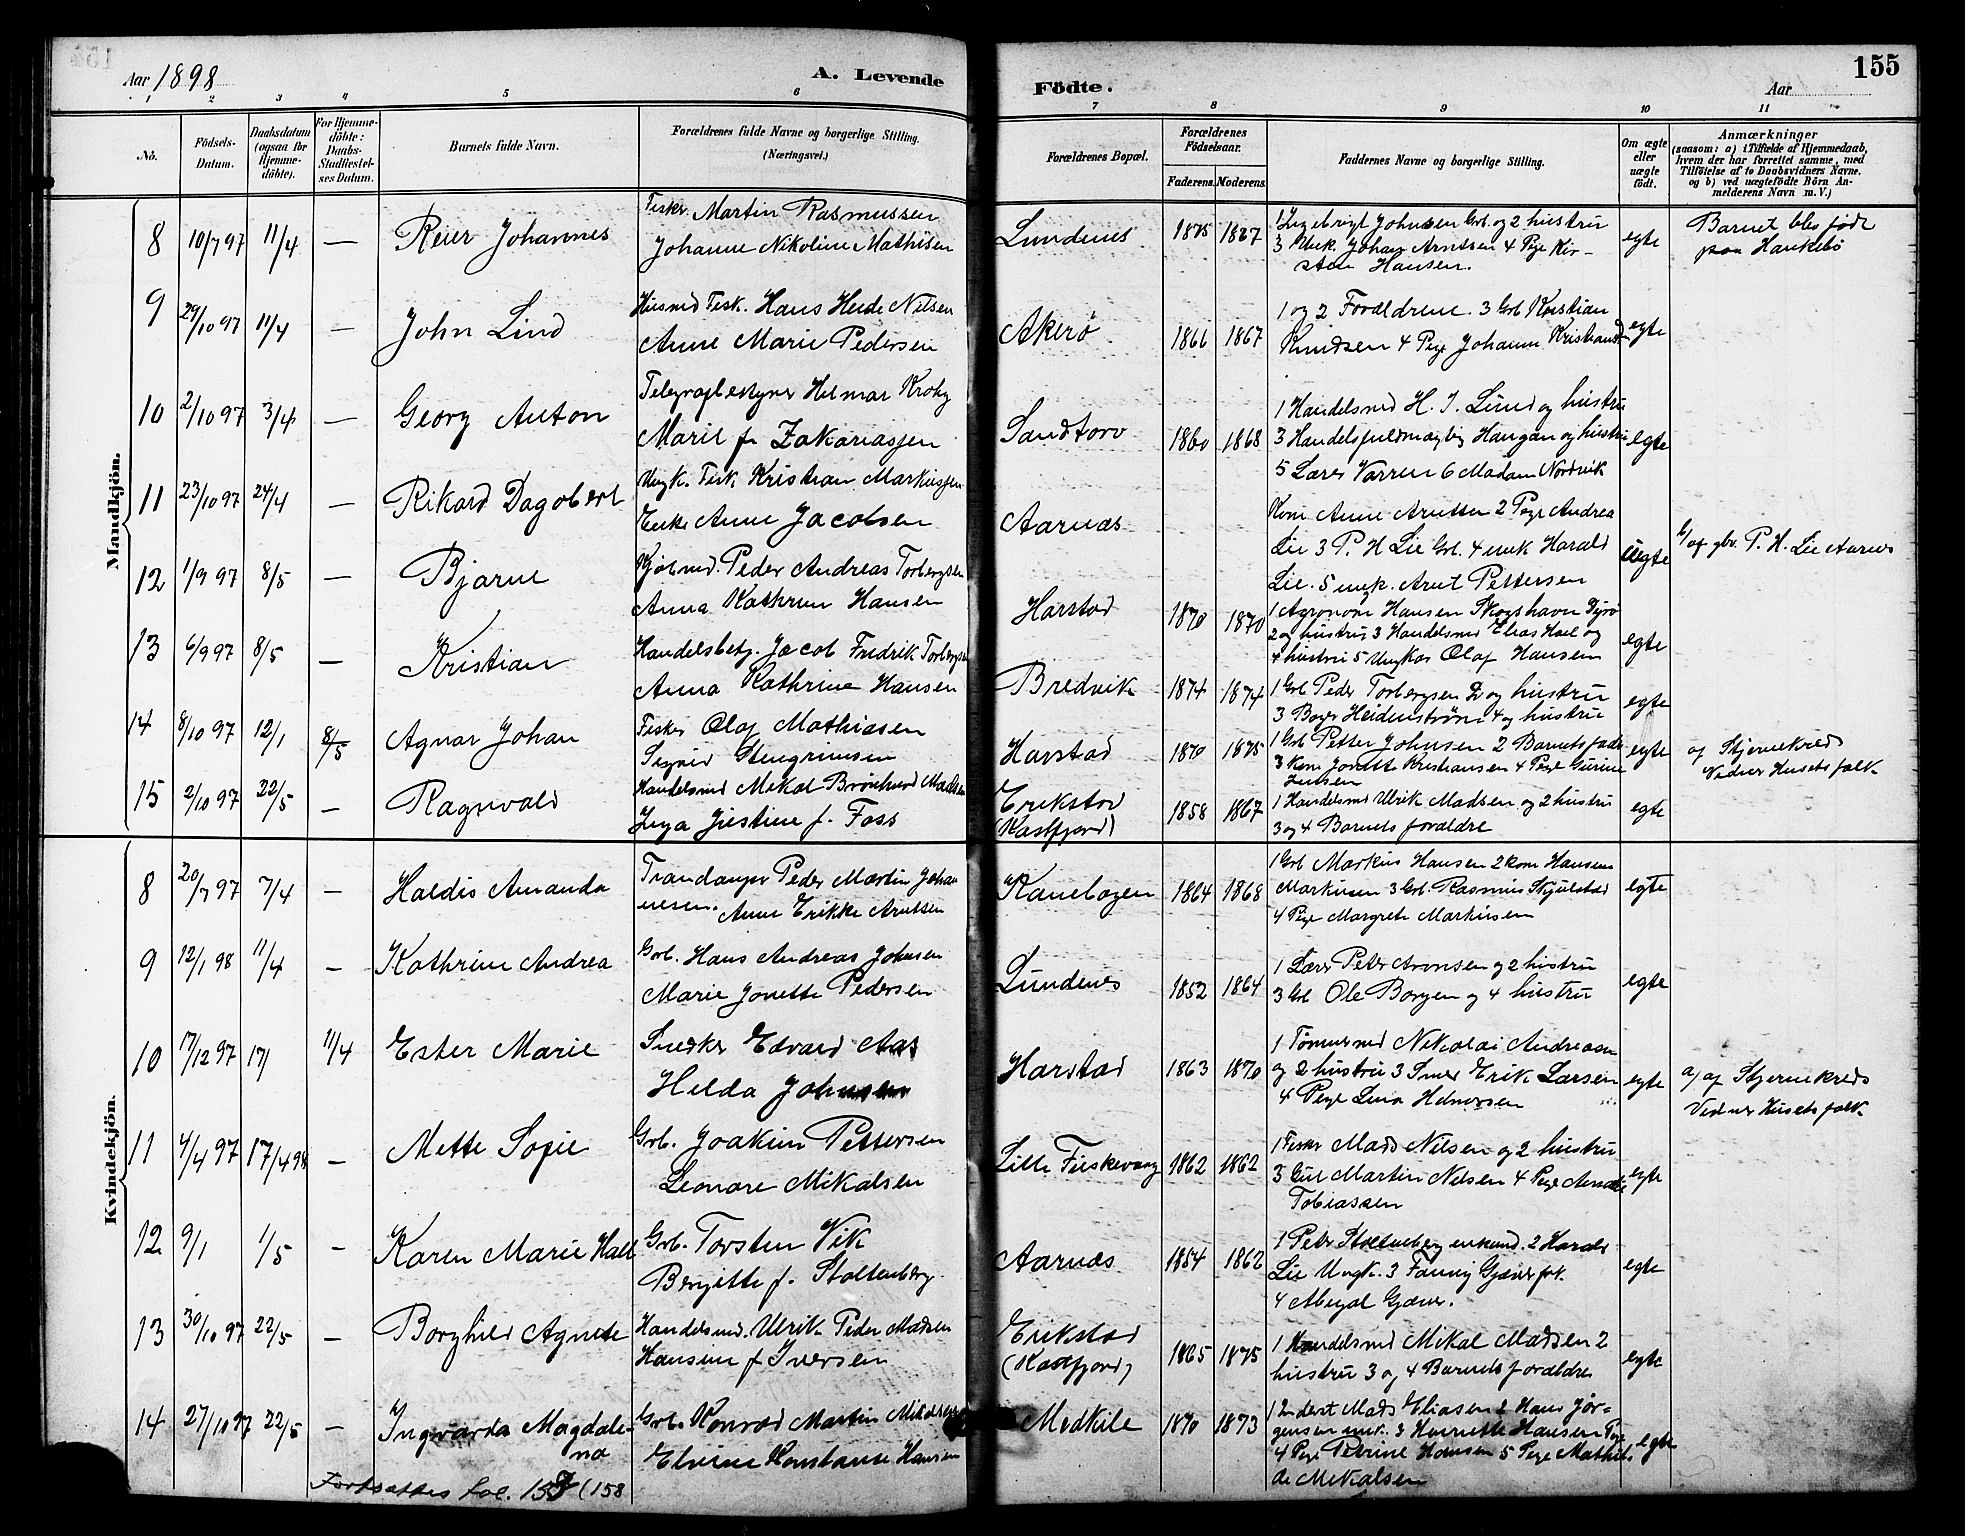 Aar 1898
A. Levende
Födte.
155
Aar
1 2 3 4 5 6 7 8 9 10 11
No.
Födsels-
Datum.
Daabsdatum
(ogsaa for
Hjemme-
döbte).
For Hjemme-
döbte:
Daabs-
Stadfæstel-
ses Datum.
Barnets fulde Navn.
Forældrenes fulde Navne og borgerlige Stilling.
(Næringsvei.)
Forældrenes Bopæl.
Forældrenes
Födselsaar.
Faderens. Moderens.
Faddernes Navne og borgerlige Stilling.
Om ægte
eller
uægte
födt.
Anmærkninger
(saasom: a) i Tilfælde af Hjemmedaab,
hvem der har forrettet samme, med
Tilföielse af to Daabsvidners Navne.
og b) ved uægtefödte Börn An-
melderens Navn m. V.)
Mandkjön.
8 10/7 97 11/4 — Reier Johannes
Fisker Martin Rasmussen
Johanne Nikoline Mathisen
Lundenes 1875 1867
1 Ingebrigt Johnsen Grb. og 2 hustru
3 Unk. Johan Arntsen 4 Pige Kir-
sten Hansen.
egte
Barnet blev født
paa Haukebø
9 29/10 97 11/4 — John Lind
Husmd Fisk. Hans Heide Nilsen
Anne Marie Pedersen
Akerø 1866 1867
1 og 2 Forældrene. 3 Grb Kristian
Knudsen 4 Pige Johanne Kristiansd
egte
10 2/10 97 3/4 — Georg Anton
Telegrafbestyrer Hilmar Kroby
Marie f. Zakariassen
Sandtorv 1860 1868
1 Handelsmd H. J. Lund og hustru
3 Handelsfuldmægtig Haugan og hustru
5 Lærer Varren 6 Madam Nordvik
egte
11 23/10 97 24/4 — Rikard Dagobert
Ungk. Fisk Kristian Markussen
Enke Anne Jacobsen
Aarnæs
Kone Anne Arntsen 2 Pige Andrea
Lie 3 P. H Lie Grb. 4 unk Harald
Lie. 5 ungk. Arnt Pettersen
uegte
b/ af gbr. P. H. Lie Aarnes
12 1/9 97 8/5 — Bjarne
Kjøbmd. Peder Andreas Torbergsen
Anna Kathrine Hansen
Harstad 1870 1870
1 Agronom Hansen Skogshavn Dyrø
2 og hustru 3 Handelsmd Elias Hoel og
4 hustru 5 Ungkar Olaf Hansen
egte
13 6/9 97 8/5 — Kristian
Handelsbetj. Jacob Fredrik Torbergsen
Anna Kathrine Hansen
Bredvik 1874 1874
1 Grb Peder Torbergsen 2 og hustru
3 Bager Heidenstrøm 4 og hustru
egte
14 8/10 97 12/1 8/5 Agnar Johan
Fisker Olaf Mathiasen
Signe Stengrimsen
Harstad 1870 1875
1 Grb Petter Johnsen 2 Barnets fader
3 Kone Jonette Kristiansen 4 Pige Gurine
Jensen
egte
af Stjernekreds
Vidner Husets folk
15 2/10 97 22/5 — Ragnvald
Handelsmd Mikal Brønlund Madsen
Inga Justine f. Foss
Erikstad
(Kasfjord) 1858 1867
1 Handelsmd Ulrik Madsen og 2 hustru
3 og 4 Barnets forældre
egte
Kvindekjön.
8 20/7 97 7/4 — Haldis Amanda
Trandamper Peder Martin Johan
nesen. Anne Erikke Arntsen
Kanebogen 1864 1868
1 Grb Markus Hansen 2 kone Hansine
Markusen 3 Grb. Rasmus Skjulstad
4 Pige Margrete Markusen
egte
9 12/1 98 11/4 — Kathrine Andrea
Grb. Hans Andreas Johnsen
Marie Jonette Pedersen
Lundenes 1852 1864
1 Lærer Peter Aronsen og 2 hustru
3 Grb Ole Borgen og 4 hustru
egte
10 17/12 97 17/ 11/4 Ester Marie
Snedker Edvard Aas
Hilda Johnsen
Harstad 1863 1870
1 Tømmermd Nikolai Andreasen
og 2 hustru 3 Smed Erik Larsen
4 Pige Lina Helmersen
egte
a/ af Stjernekreds
Vidner Husets folk
11 4/4 97 17/4 98 — Mette Sofie
Grb. Joakim Pettersen
Leonore Mikalsen
Lille Fiskevaag 1862 1862
1 Fisker Mads Nilsen og 2 hustru
3 Gut Martin Nilsen 4 Pige
Tobiassen
egte
12 9/1 1/5 — Karen Marie Hall
Grb. Torsten Vik
Bergitte f. Stoltenberg
Aarnæs 1854 1862
1 Peter Stoltenberg enkemd. 2 Harald
Lie Ungk. 3 Fanny Gjæver frk.
4 Abigal Gjæver.
egte
13 30/10 97 22/5 — Borghild Agnete
Handelsmd. Ulrik Peder Madsen
Hansine f Iversen
Erikstad
(Kasfjord) 1865 1875
1 Handelsmd Mikal Madsen 2
hustru 3 og 4 Barnets forældre
egte
14 27/10 97 22/5 — Ingvarda Magdale-
na
Grb. Konrad Martin Mikalsen
Elvine Konstanse Hansen
Medkile 1870 1873
1 Inderst Mads Eliasen 2 Hans Jør-
gensen unk. 3 Henriette Hansen Pige
4 Pige Petrine Hansen 5 Pige Mathil-
de Mikalsen
egte
Fortsættes fol. 157 (158